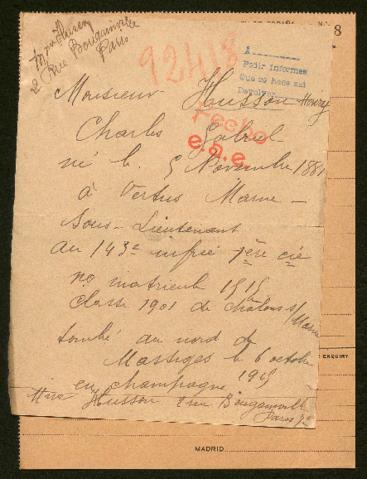 Mme Husson
2 Rue Bougainville
Paris
92418
8
A
Pedir informes
Que se hace así
Devolver
Monsieur Husson Henry
Charles Gabriel
hecho
e.a.e.
né le 5 Novembre 1881
à Vertus Marne -
Sous-Lieutenant
au 143e infrie 7ère cie
no matricule 1515
Classe 1901 de Châlons s/Marne
tombé au nord de
Massiges le 6 octobre
en champagne 1915
Mme Husson 2 rue Bougainville
Paris 7e
ENQUIRY
MADRID